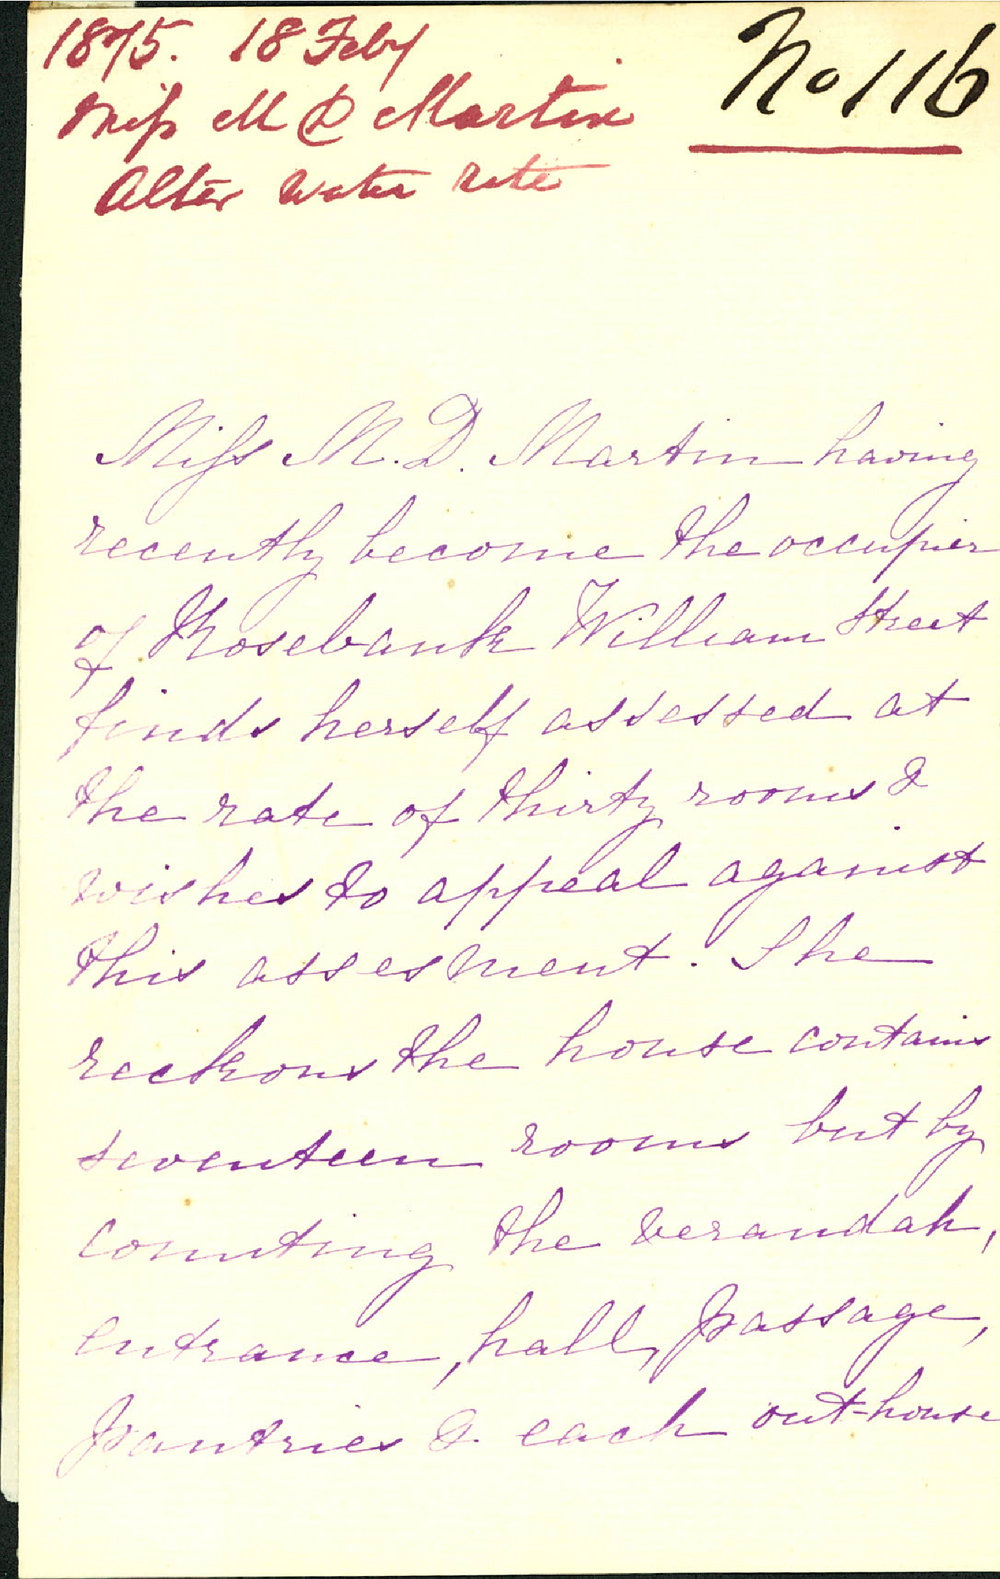 1875. 18 Feby
No 116
Miss M D Martin
Alter water rate
Miss M. D. Martin having
recently become the occupier
of Rosebank William Street
finds herself assessed at
the rate of thirty rooms &
wishes to appeal against
this assesment. She
reckons the house contains
seventeen rooms but by
counting the verandah,
entrance, hall, passage,
pantries & each out-house